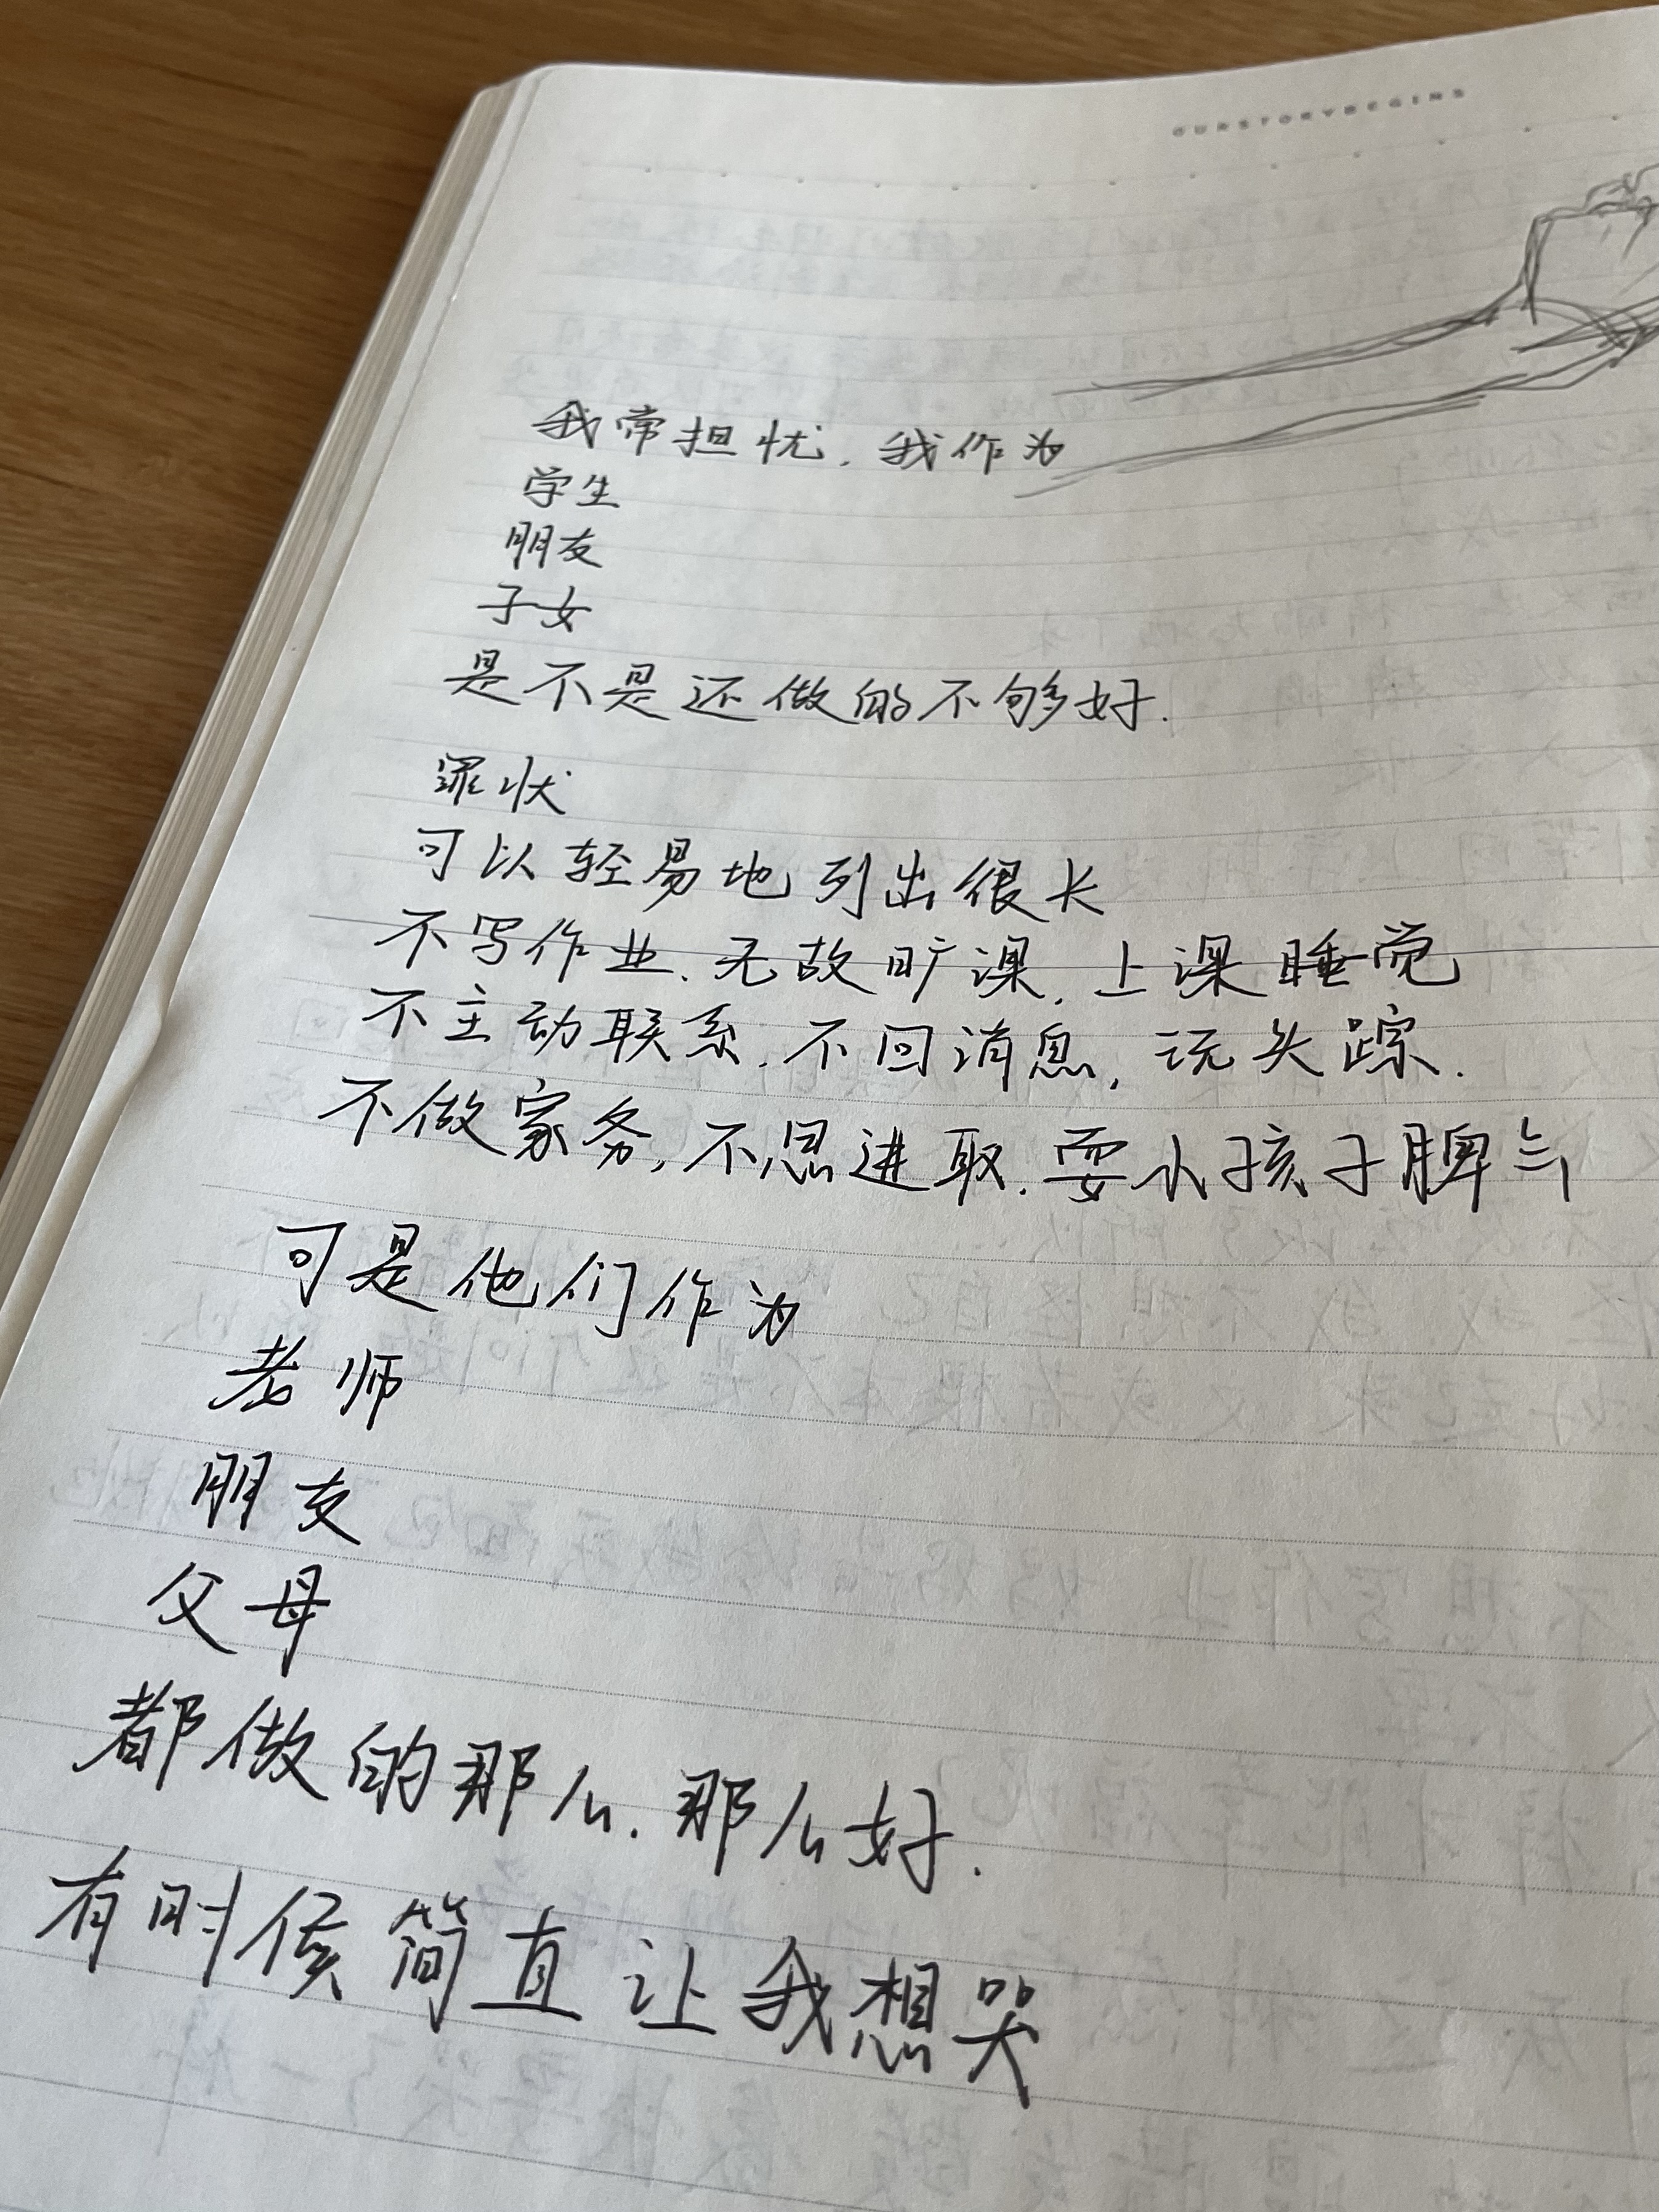 OURSTORYBEGINS
我常担忧，我作为
学生
朋友
子女
是不是还做的不够好.
罪状
可以轻易地列出很长
不写作业、无故旷课，上课睡觉
不主动联系，不回消息，玩失踪.
不做家务，不思进取，耍小孩子脾气
可是他们作为
老师
朋友
父母
都做的那么、那么好.
有时候简直让我想哭